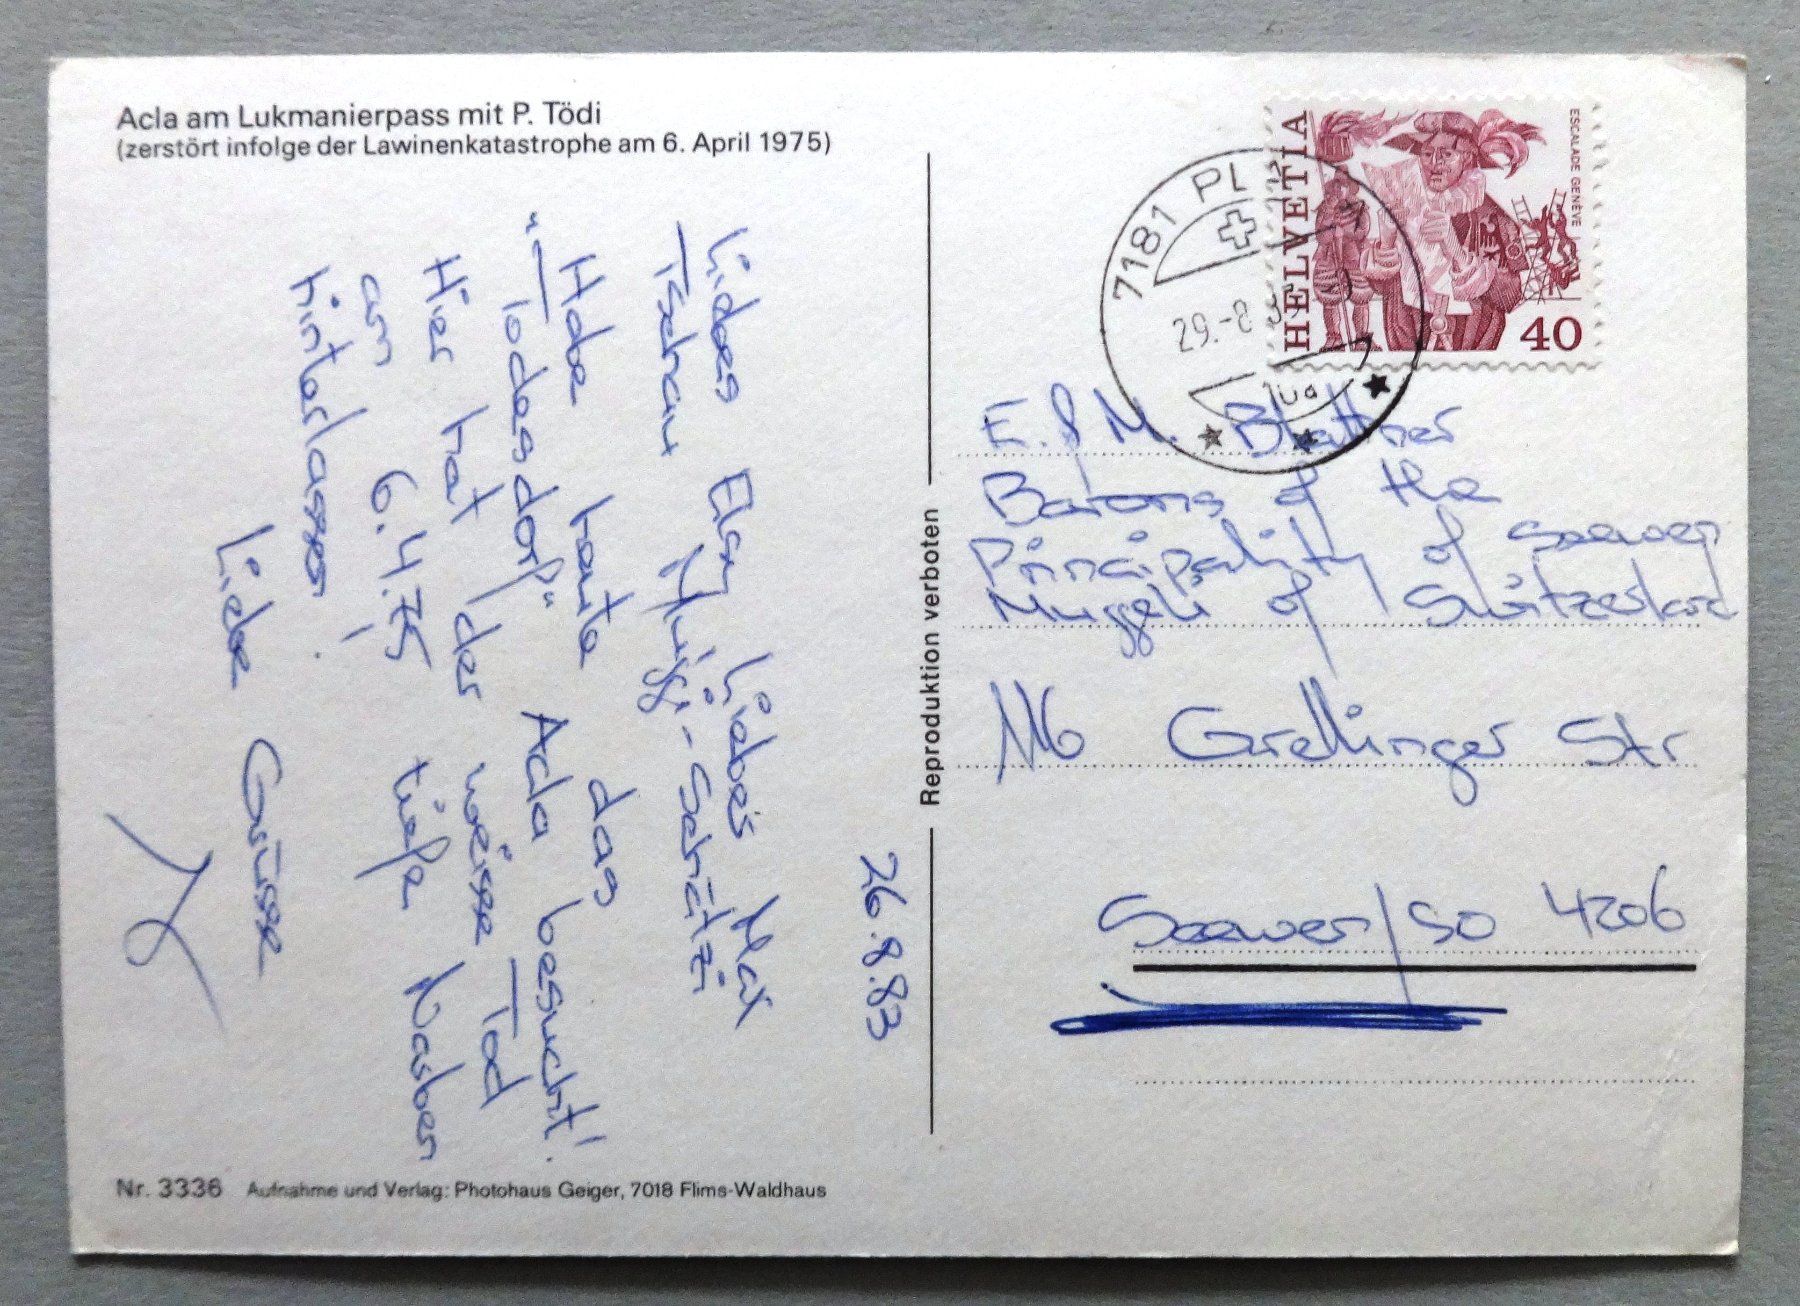 Acla am Lukmanierpass mit P. Tödi
(zerstört infolge der Lawinenkatastrophe am 6. April 1975)
26.8.83
Liebes Elsy, Liebes Max
Tschau Muggi-Schätzi
Habe heute das
"Todesdorf" Acla besucht!
Hier hat der weisse Tod
am 6.4.75 tiefe Narben
hinterlassen!
Liebe Grüsse
Nr. 3336 Aufnahme und Verlag: Photohaus Geiger, 7018 Flims-Waldhaus
Reproduktion verboten
HELVETIA
ESCALADE GENÈVE
40
7181
29.-8
E. & M. Blattner
Barons of the
Principality of Seewen
Muggeli of Switzerland
116 Grellinger Str
Seewen/SO 4206